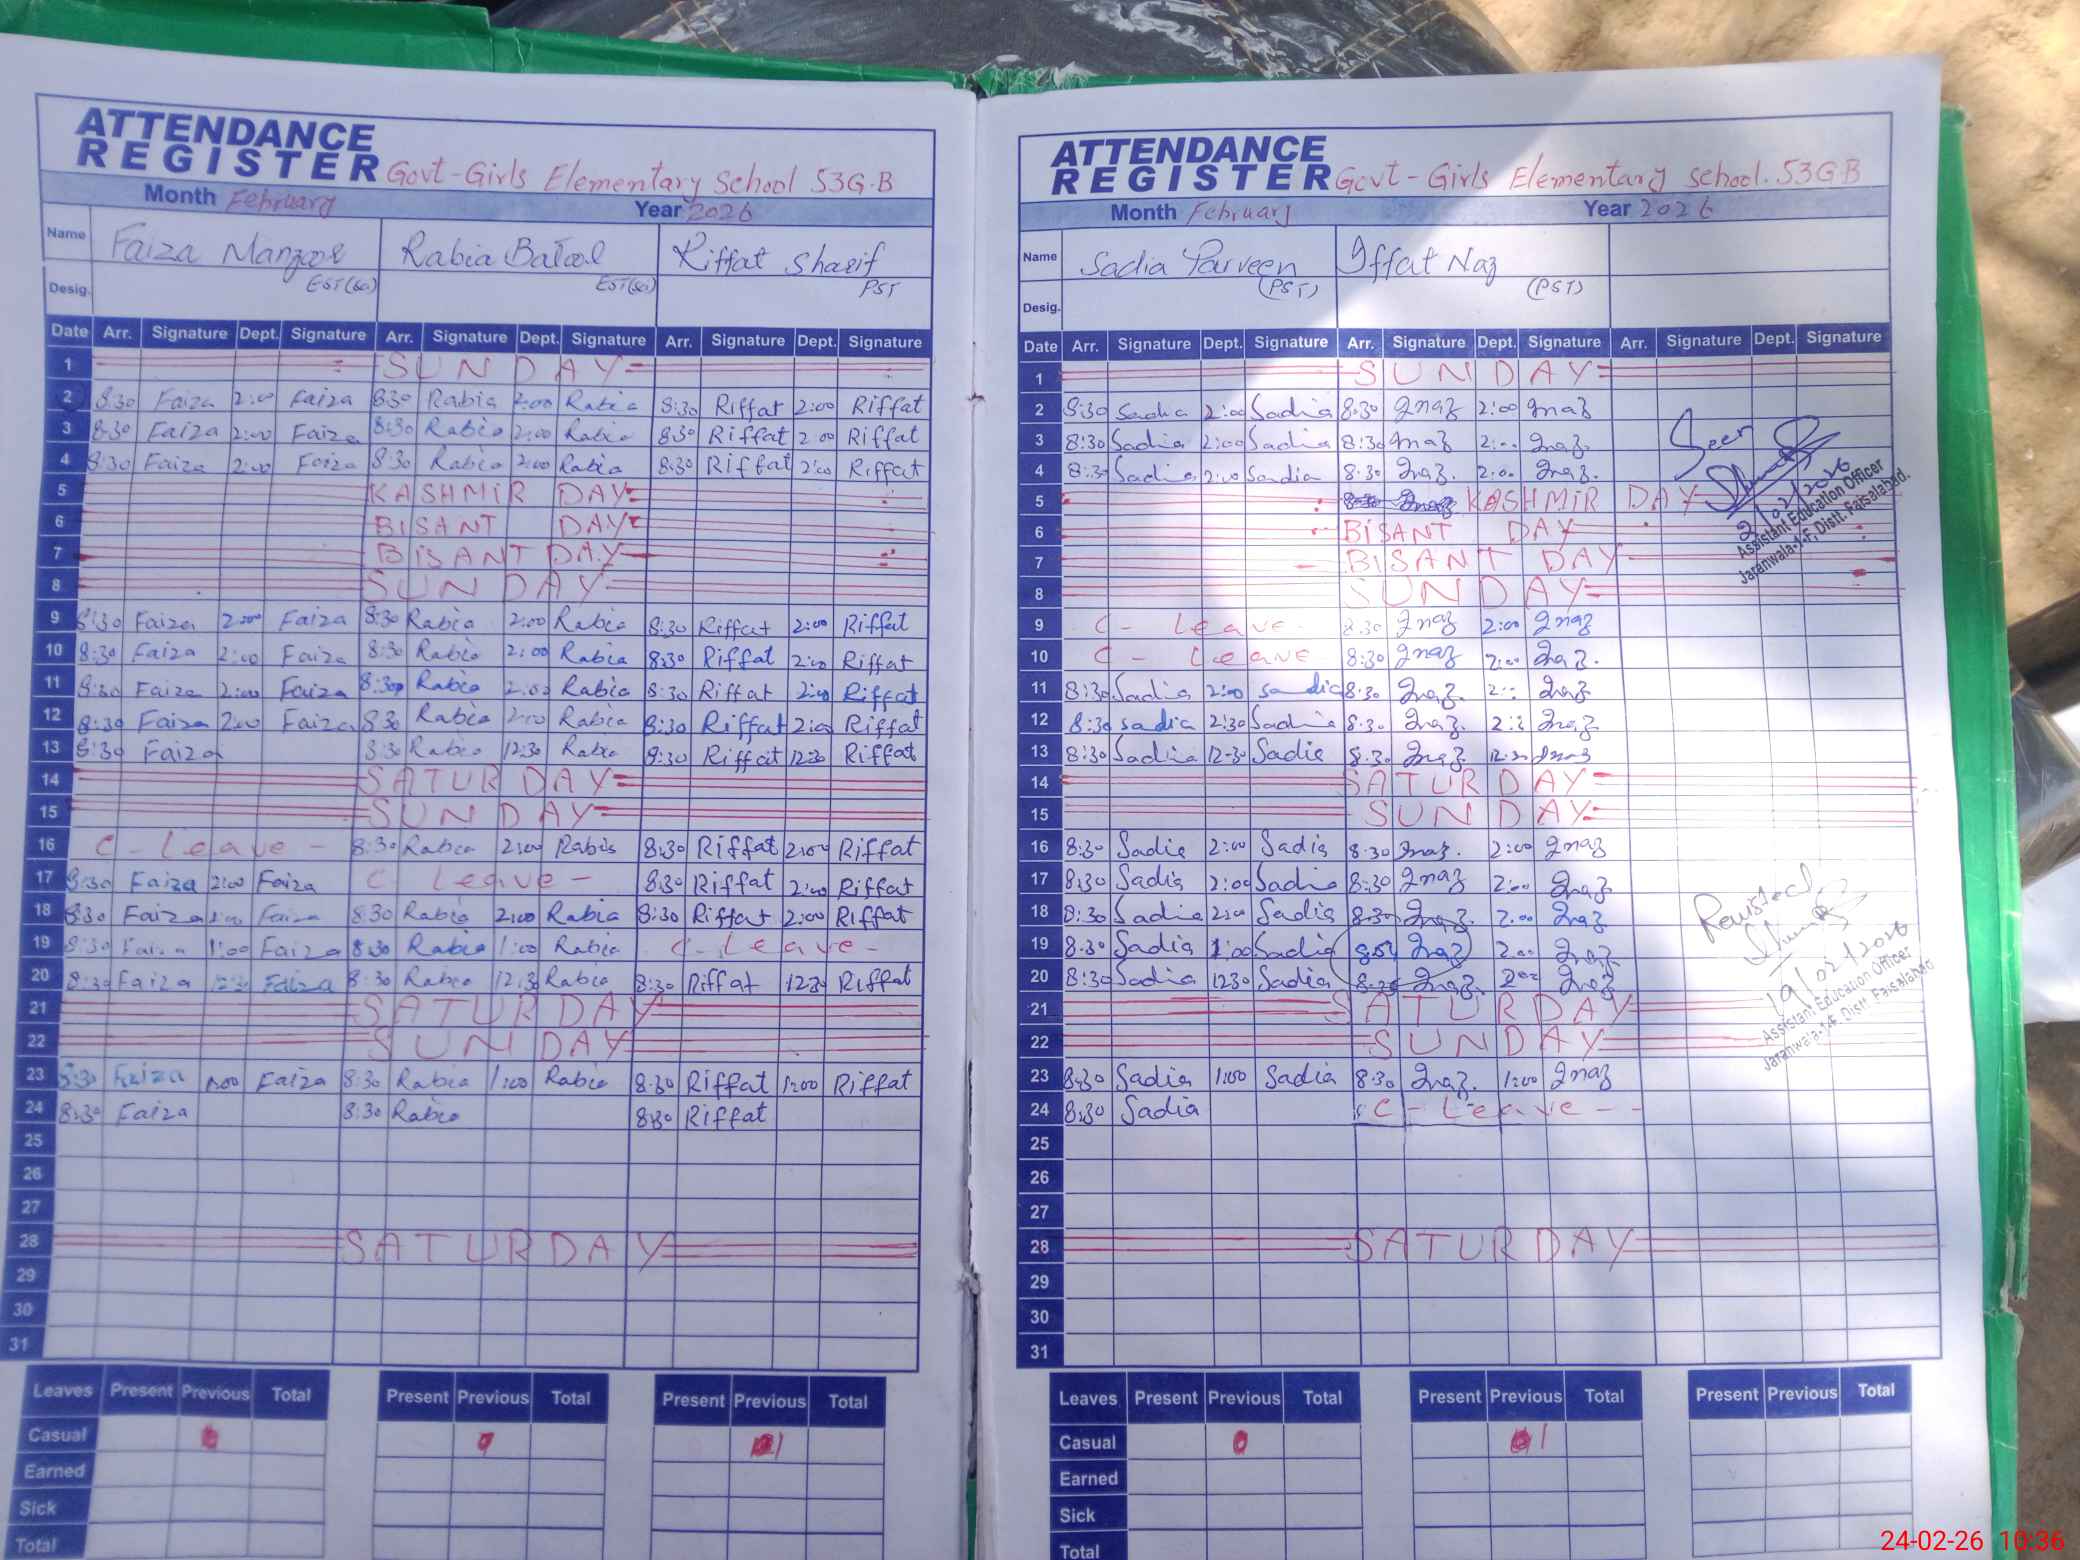 ATTENDANCE
REGISTER Govt-Girls Elementary School 53G.B
Month February Year 2026
Name Faiza Manzoor Rabia Batool Riffat Sharif
Desig. EST(Sc) EST(Sc) PST
Date Arr. Signature Dept. Signature Arr. Signature Dept. Signature Arr. Signature Dept. Signature
1 SUNDAY
2 8:30 Faiza 2:00 Faiza 8:30 Rabia 2:00 Rabia 8:30 Riffat 2:00 Riffat
3 8:30 Faiza 2:00 Faiza 8:30 Rabia 2:00 Rabia 8:30 Riffat 2:00 Riffat
4 8:30 Faiza 2:00 Faiza 8:30 Rabia 2:00 Rabia 8:30 Riffat 2:00 Riffat
5 KASHMIR DAY
6 BISANT DAY
7 BISANT DAY
8 SUNDAY
9 8:30 Faiza 2:00 Faiza 8:30 Rabia 2:00 Rabia 8:30 Riffat 2:00 Riffat
10 8:30 Faiza 2:00 Faiza 8:30 Rabia 2:00 Rabia 8:30 Riffat 2:00 Riffat
11 8:30 Faiza 2:00 Faiza 8:30 Rabia 2:00 Rabia 8:30 Riffat 2:00 Riffat
12 8:30 Faiza 2:00 Faiza 8:30 Rabia 2:00 Rabia 8:30 Riffat 2:00 Riffat
13 8:30 Faiza 8:30 Rabia 12:30 Rabia 8:30 Riffat 12:30 Riffat
14 SATURDAY
15 SUNDAY
16 C-Leave- 8:30 Rabia 2:00 Rabia 8:30 Riffat 2:00 Riffat
17 8:30 Faiza 2:00 Faiza C Leave- 8:30 Riffat 2:00 Riffat
18 8:30 Faiza 2:00 Faiza 8:30 Rabia 2:00 Rabia 8:30 Riffat 2:00 Riffat
19 8:30 Faiza 1:00 Faiza 8:30 Rabia 1:00 Rabia C-Leave-
20 8:30 Faiza 12:30 Faiza 8:30 Rabia 12:30 Rabia 8:30 Riffat 12:30 Riffat
21 SATURDAY
22 SUNDAY
23 8:30 Faiza 1:00 Faiza 8:30 Rabia 1:00 Rabia 8:30 Riffat 1:00 Riffat
24 8:30 Faiza 8:30 Rabia 8:30 Riffat
25
26
27
28 SATURDAY
29
30
31
Leaves Present Previous Total Present Previous Total Present Previous Total
Casual 1
Earned
Sick
Total
ATTENDANCE
REGISTER Govt-Girls Elementary School. 53GB
Month February Year 2026
Name Sadia Parveen Iffat Naz
Desig. (PST) (PST)
Date Arr. Signature Dept. Signature Arr. Signature Dept. Signature Arr. Signature Dept. Signature
1 SUNDAY
2 8:30 Sadia 2:00 Sadia 8:30 Inaz 2:00 Inaz
3 8:30 Sadia 2:00 Sadia 8:30 Inaz 2:00 Inaz. Seen
4 8:30 Sadia 2:00 Sadia 8:30 Inaz. 2:00 Inaz.
5 KASHMIR DAY
6 BISANT DAY
7 BISANT DAY
8 SUNDAY
/02/2026
Assistant Education Officer
Jaranwala-1-F, Distt. Faisalabad.
9 C-Leave 8:30 Inaz 2:00 Inaz
10 C-Leave 8:30 Inaz 2:00 Inaz.
11 8:30 Sadia 2:00 Sadia 8:30 Inaz. 2:00 Inaz
12 8:30 Sadia 2:30 Sadia 8:30 Inaz. Inaz
13 8:30 Sadia 12:30 Sadia 8:30 Inaz. 12:30 Inaz
14 SATURDAY
15 SUNDAY
16 8:30 Sadia 2:00 Sadia 8:30 Inaz. 2:00 Inaz
17 8:30 Sadia 2:00 Sadia 8:30 Inaz 2:00 Inaz
18 8:30 Sadia 2:00 Sadia 8:30 Inaz. 2:00 Inaz
19 8:30 Sadia 1:00 Sadia Inaz 2:00 Inaz
20 8:30 Sadia 12:30 Sadia 8:30 Inaz. 2:00 Inaz
21 SATURDAY
22 SUNDAY
19/02/2026
Assistant Education Officer
Jaranwala-1-F, Distt. Faisalabad
23 8:30 Sadia 1:00 Sadia 8:30 Inaz. 1:00 Inaz
24 8:30 Sadia C-Leave--
25
26
27
28 SATURDAY
29
30
31
Leaves Present Previous Total Present Previous Total Present Previous Total
Casual 0 1
Earned
Sick
Total
24-02-26 10:36